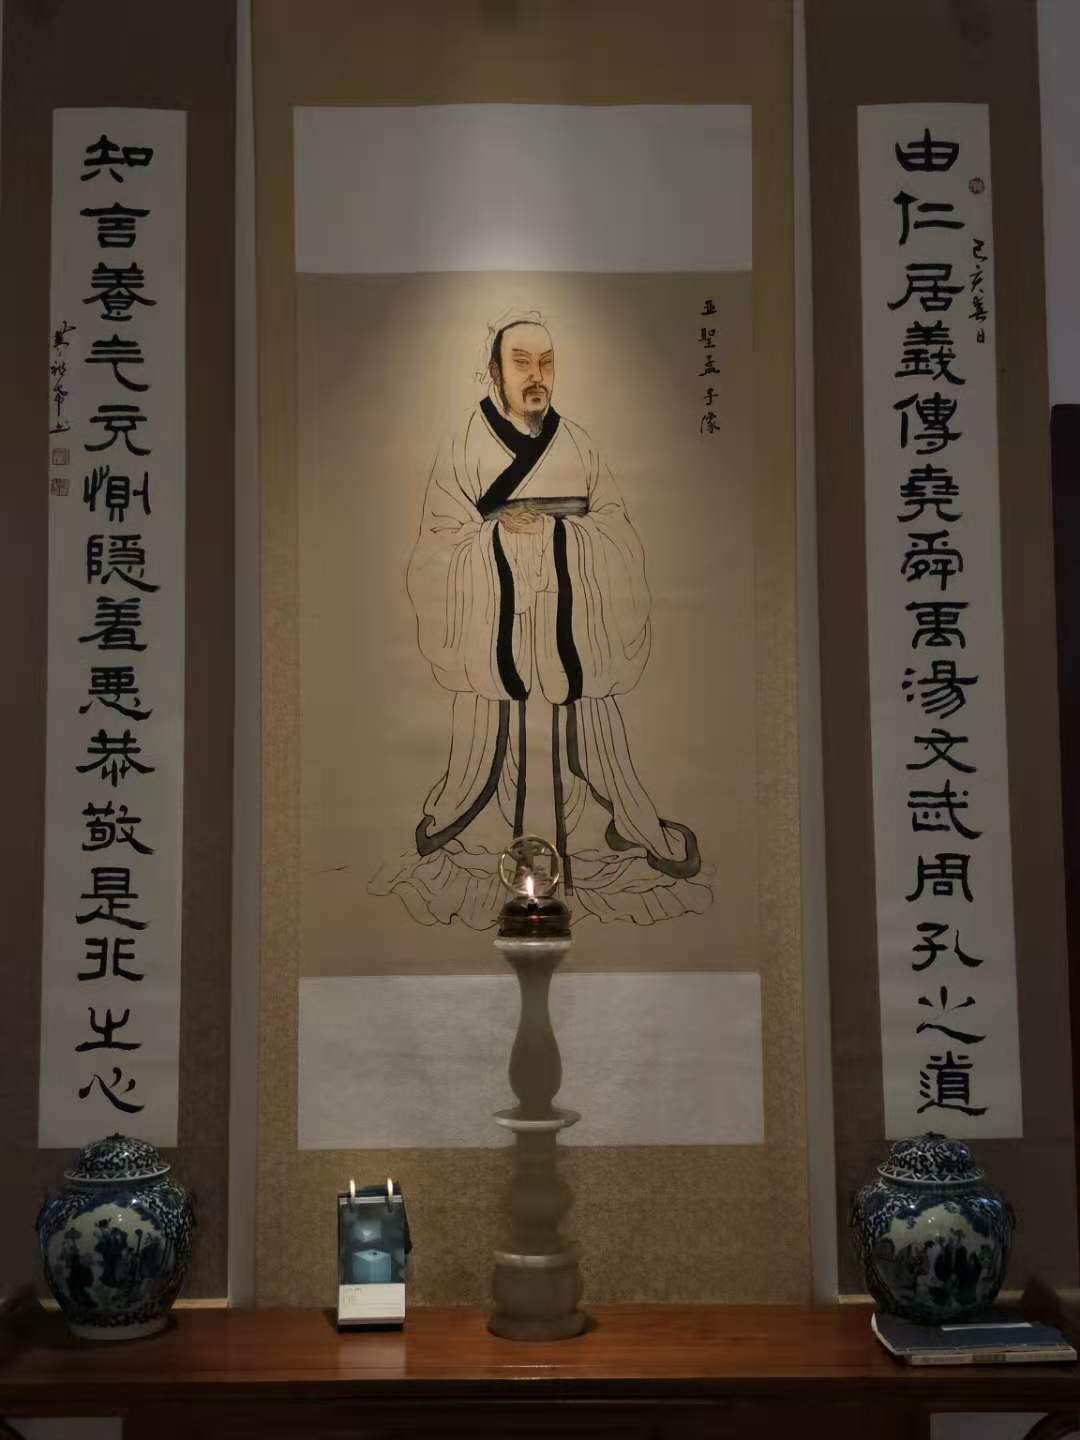 由仁居義傳堯舜禹湯文武周孔之道
己亥春日
亚聖孟子像
知言養气充惻隱羞惡恭敬是非之心